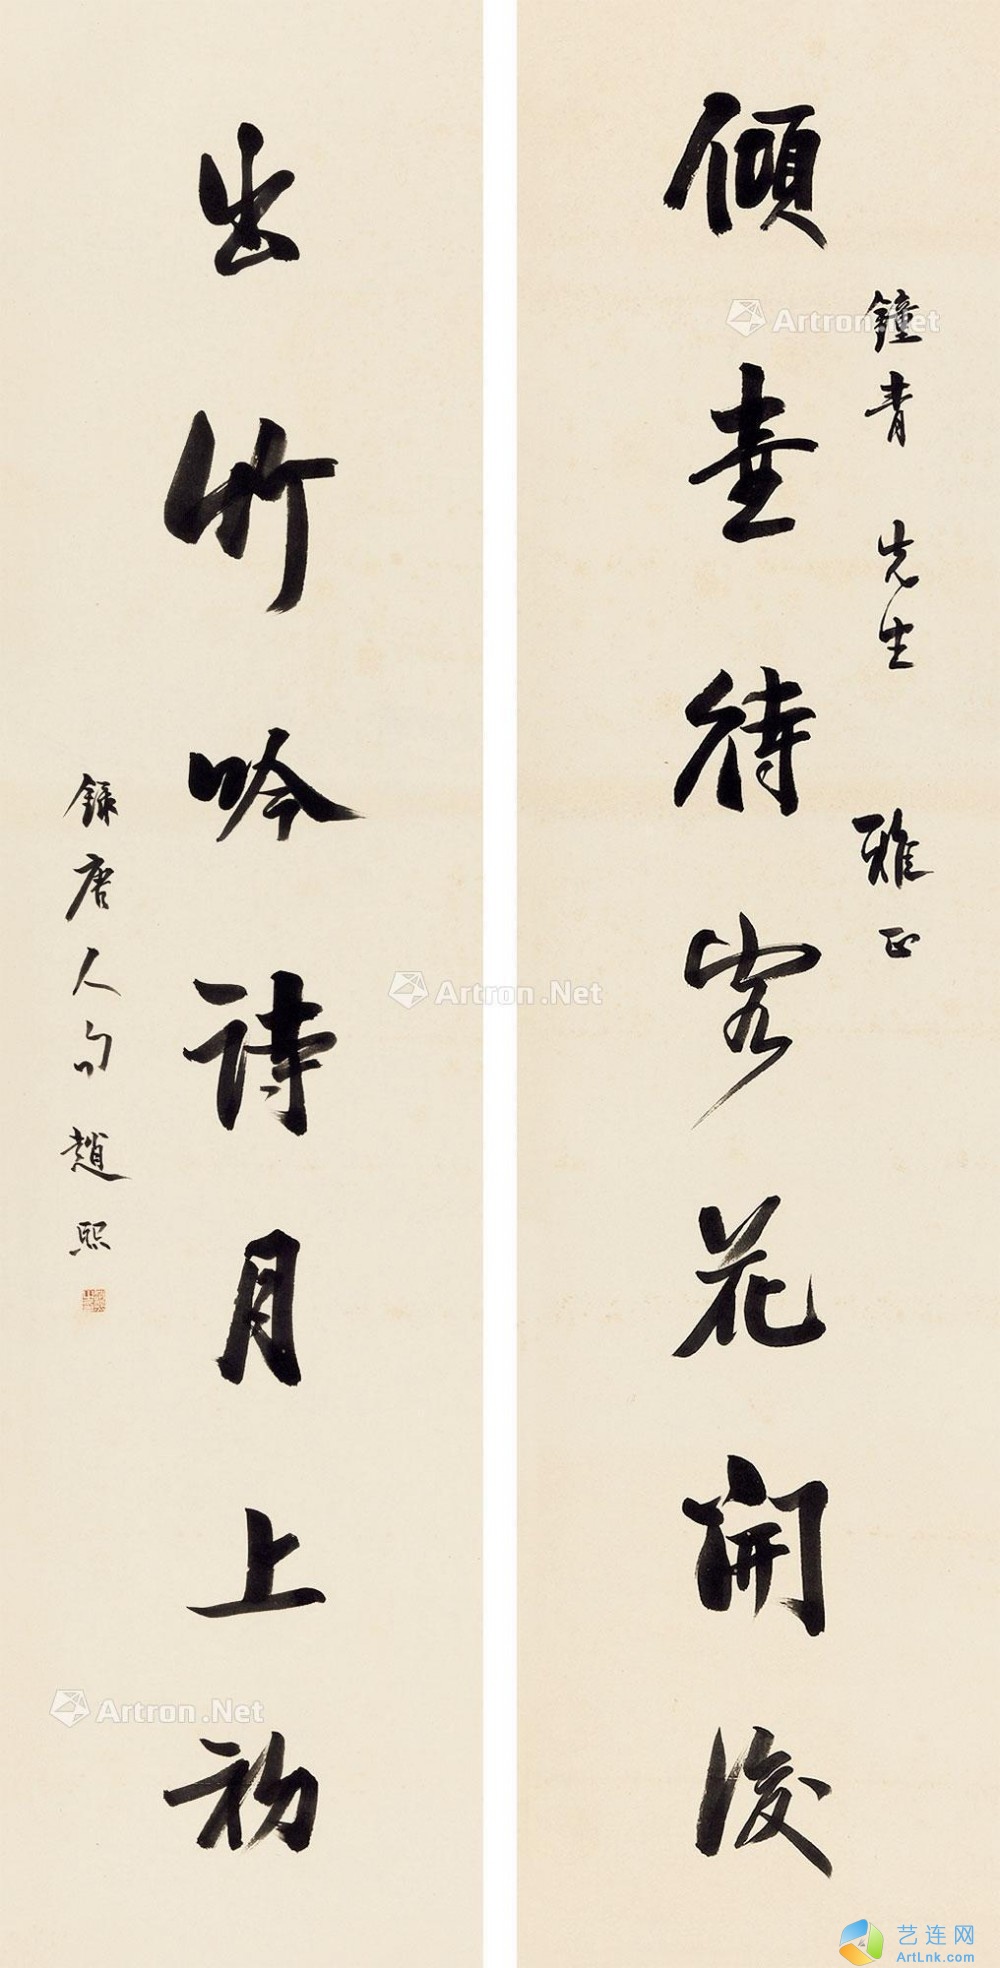 鐘青先生雅正
傾壺待客花開後
出竹吟詩月上初
錄唐人句趙熙
Artron.Net
Artron.Net
Artron.Net
艺连网
ArtLnk.com